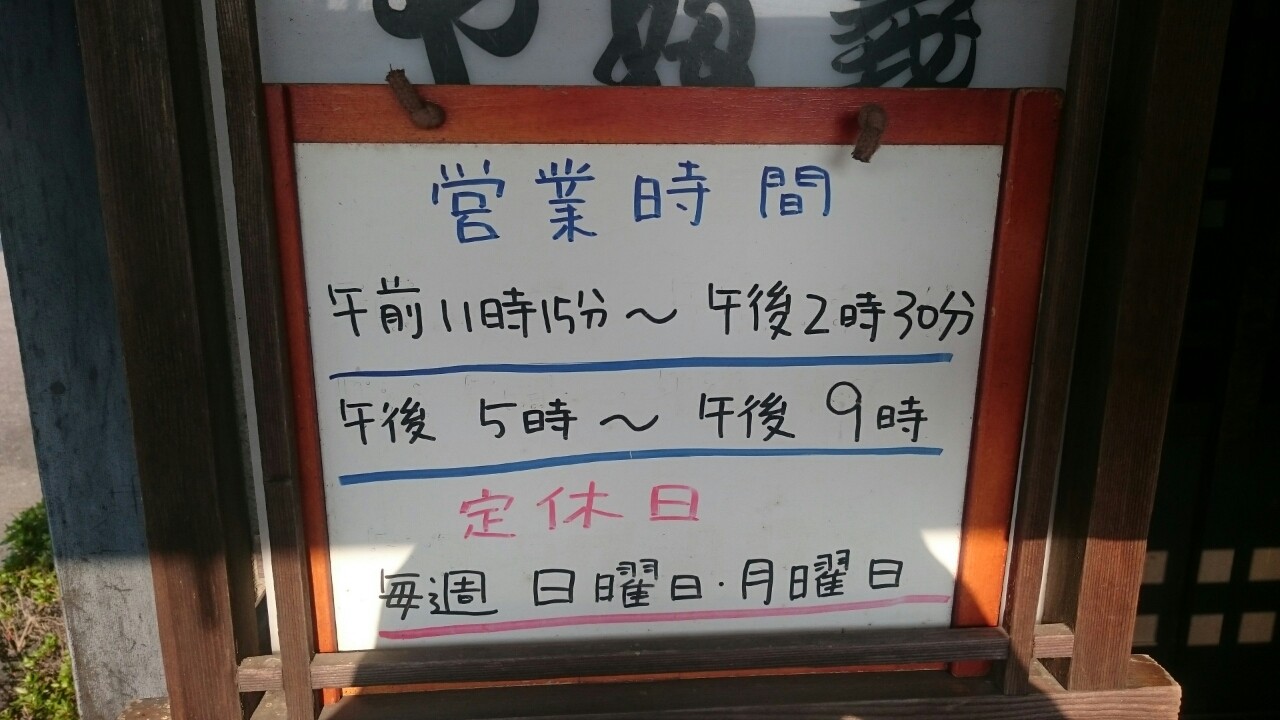 営業時間
午前11時15分～午後2時30分
午後 5時～午後 9時
定休日
毎週 日曜日·月曜日